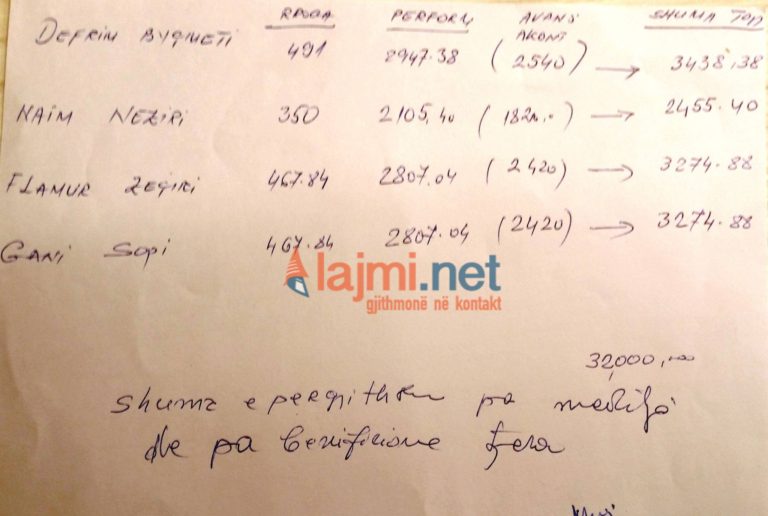 RROGA PERFORM AVANS SHUMA TOP
AKONT
DEFRIM BYQMETI 491 2947.38 (2540) → 3438.38
NAIM NEZIRI 350 2105.40 (1820.0) → 2455.40
FLAMUR ZEQIRI 467.84 2807.04 (2420) → 3274.88
GANI SOPI 467.84 2807.04 (2420) → 3274.88
lajmi.net
gjithmonë në kontakt
32,000,00
shuma e pergjithsme pa meditja
dhe pa benificione tjera